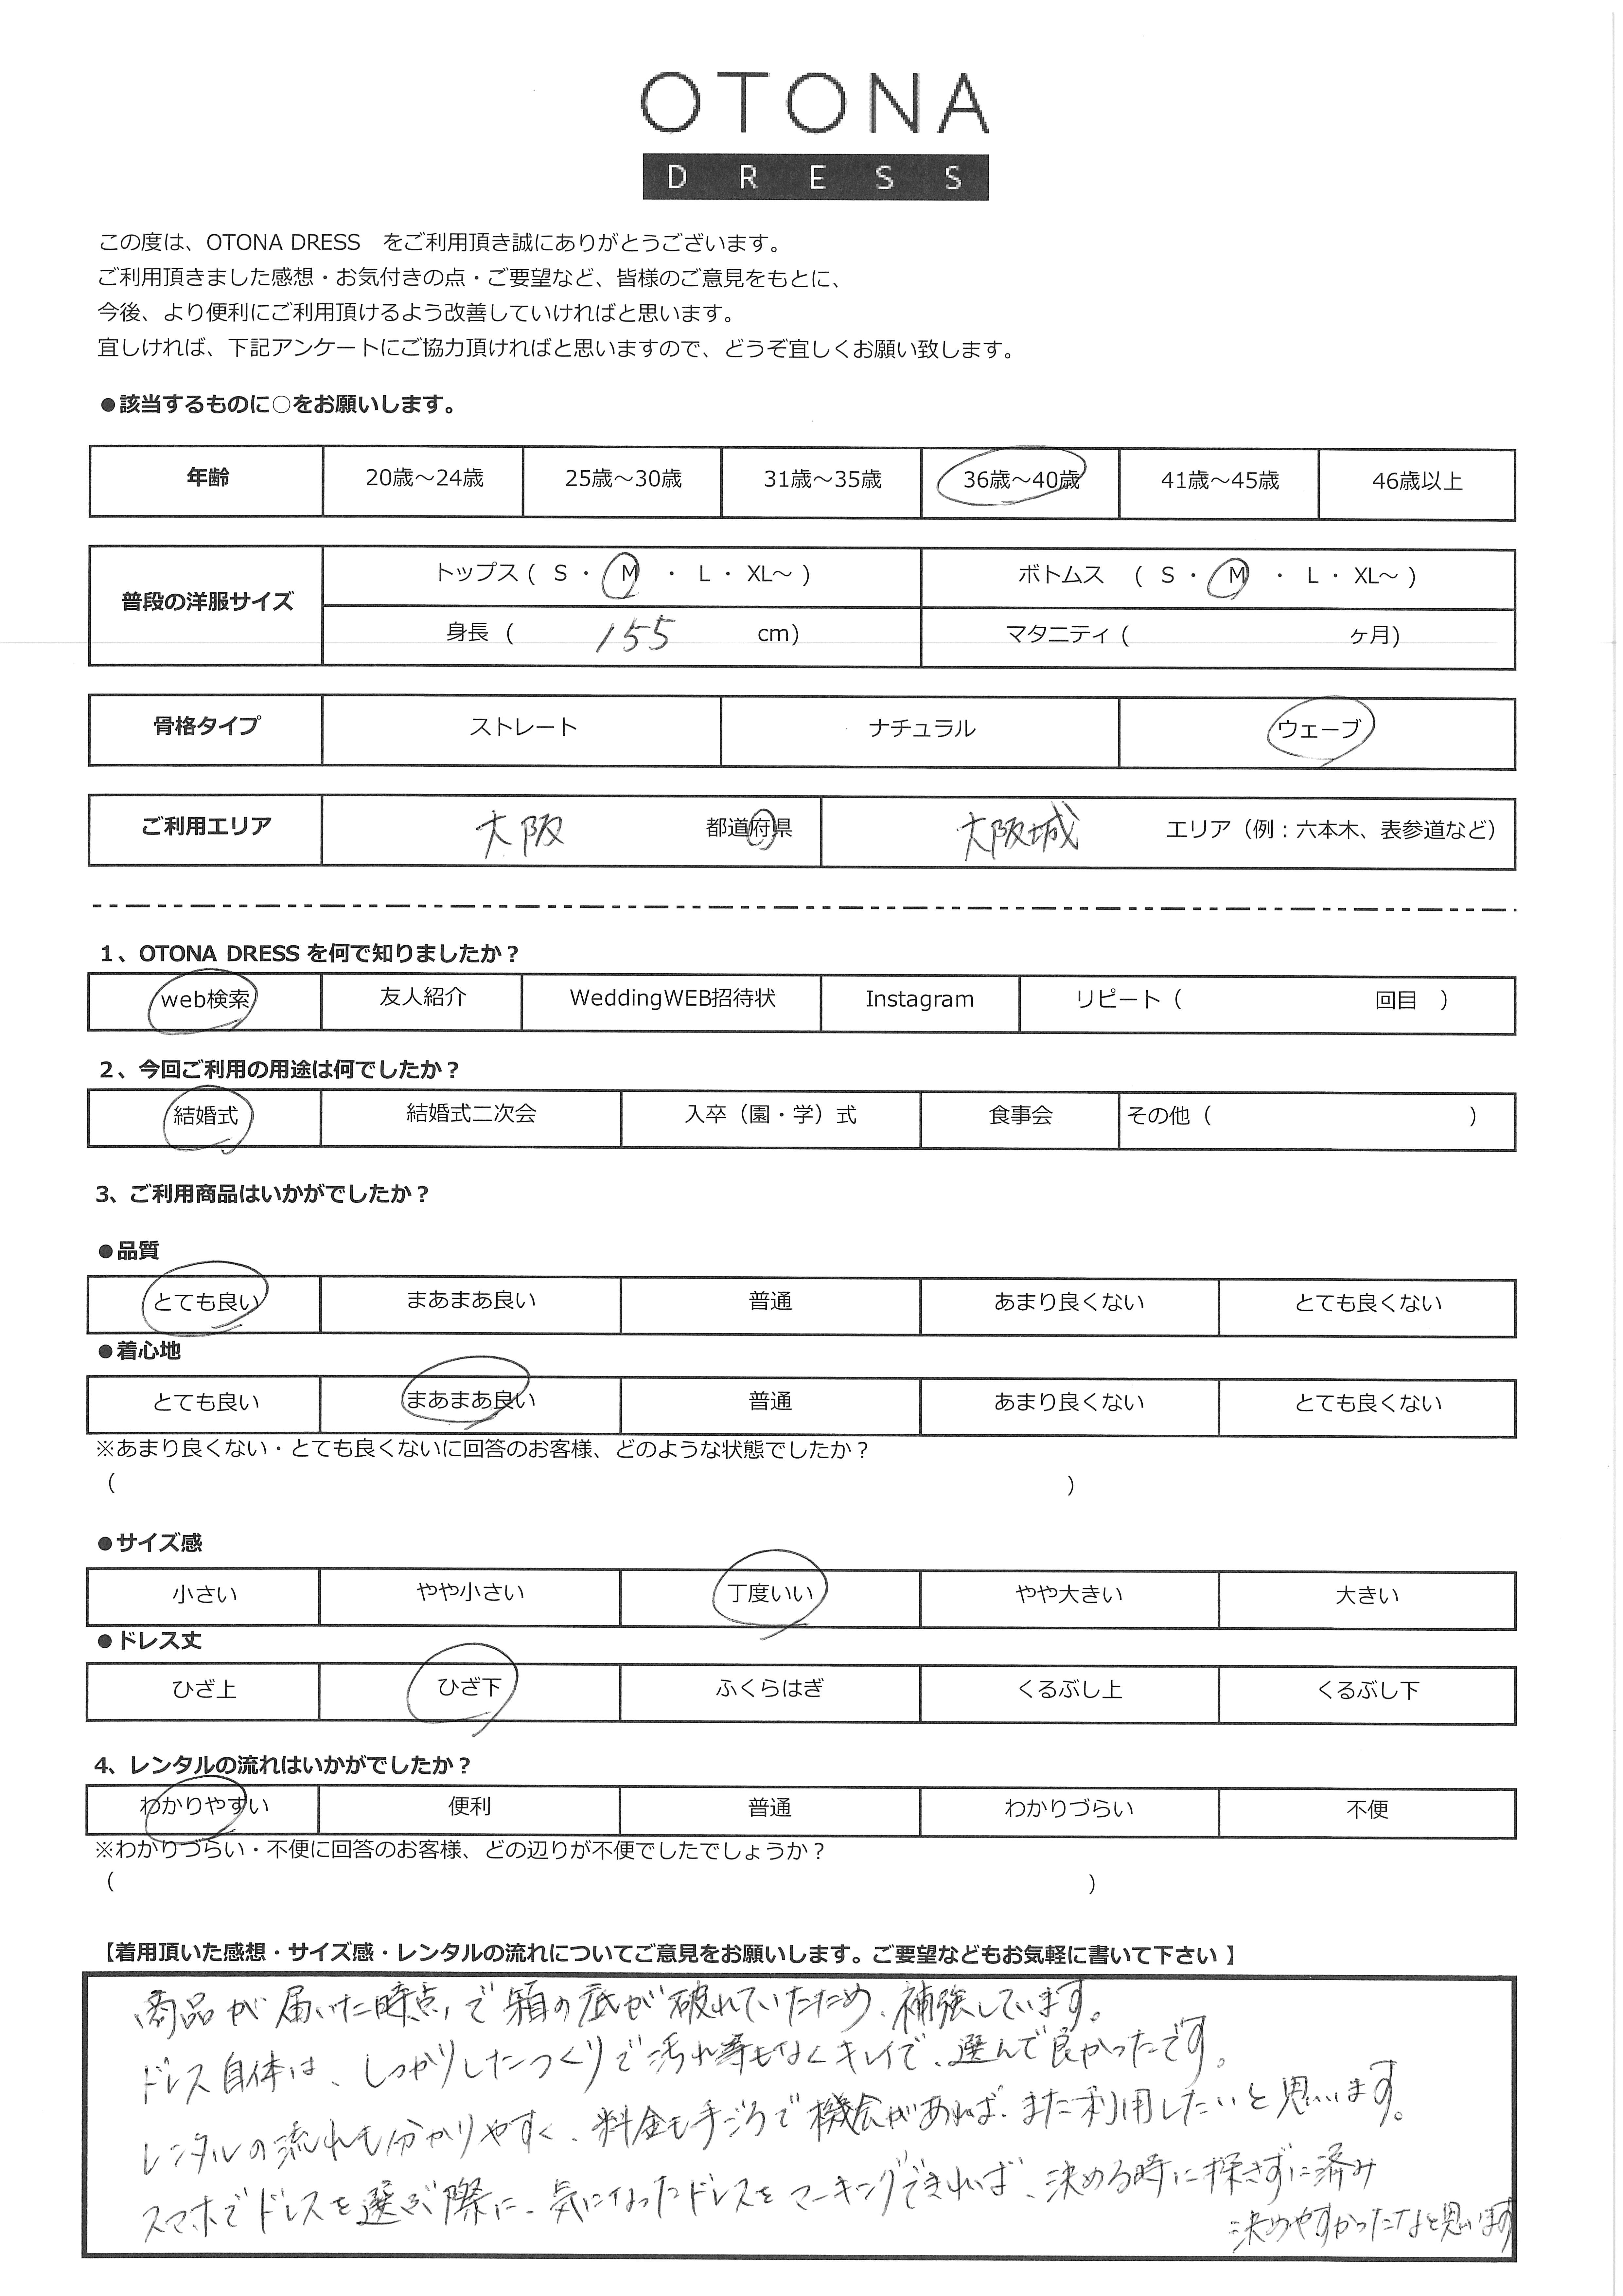 OTONA
DRESS
この度は、OTONA DRESS　をご利用頂き誠にありがとうございます。
ご利用頂きました感想・お気付きの点・ご要望など、皆様のご意見をもとに、
今後、より便利にご利用頂けるよう改善していければと思います。
宜しければ、下記アンケートにご協力頂ければと思いますので、どうぞ宜しくお願い致します。
●該当するものに○をお願いします。
年齢 20歳～24歳 25歳～30歳 31歳～35歳 36歳～40歳 41歳～45歳 46歳以上
普段の洋服サイズ トップス ( S ・ M ・ L ・ XL～ ) ボトムス ( S ・ M ・ L ・ XL～ )
身長 ( 155 cm) マタニティ ( ヶ月)
骨格タイプ ストレート ナチュラル ウェーブ
ご利用エリア 大阪 都道府県 大阪城 エリア（例：六本木、表参道など）
1、OTONA DRESS を何で知りましたか？
web検索 友人紹介 WeddingWEB招待状 Instagram リピート（ 回目 ）
2、今回ご利用の用途は何でしたか？
結婚式 結婚式二次会 入卒（園・学）式 食事会 その他（ ）
3、ご利用商品はいかがでしたか？
●品質
とても良い まあまあ良い 普通 あまり良くない とても良くない
●着心地
とても良い まあまあ良い 普通 あまり良くない とても良くない
※あまり良くない・とても良くないに回答のお客様、どのような状態でしたか？
（ ）
●サイズ感
小さい やや小さい 丁度いい やや大きい 大きい
●ドレス丈
ひざ上 ひざ下 ふくらはぎ くるぶし上 くるぶし下
4、レンタルの流れはいかがでしたか？
わかりやすい 便利 普通 わかりづらい 不便
※わかりづらい・不便に回答のお客様、どの辺りが不便でしたでしょうか？
（ ）
【着用頂いた感想・サイズ感・レンタルの流れについてご意見をお願いします。ご要望などもお気軽に書いて下さい 】
商品が届いた時点で箱の底が破れていたため、補強しています。
ドレス自体は、しっかりしたつくりで汚れ等もなくキレイで、選んで良かったです。
レンタルの流れも分かりやすく、料金も手ごろで機会があれば、また利用したいと思います。
スマホでドレスを選ぶ際に、気になったドレスをマーキングできれば、決める時に探さずに済み
決めやすかったなと思います